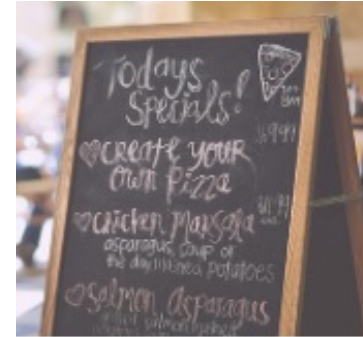 Todays
Specials!
CREATE YOUR
OWN PIZZA
$9.99
CHICKEN MARSALA
asparagus, soup of
the day, potatoes
Salmon Asparagus
salmon